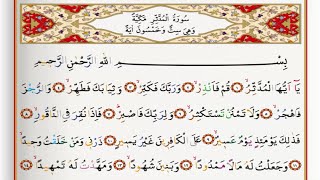 سُورَةُ الْمُدَّثِّرِ مَكِّيَّةٌ
وَهِيَ سِتٌّ وَخَمْسُونَ اٰيَةً
بِسْمِ اللّٰهِ الرَّحْمٰنِ الرَّحِيمِ
يَٓا اَيُّهَا الْمُدَّثِّرُ ﴿١﴾ قُمْ فَاَنْذِرْ ﴿٢﴾ وَرَبَّكَ فَكَبِّرْ ﴿٣﴾ وَثِيَابَكَ فَطَهِّرْ ﴿٤﴾ وَالرُّجْزَ
فَاهْجُرْ ﴿٥﴾ وَلَا تَمْنُنْ تَسْتَكْثِرُ ﴿٦﴾ وَلِرَبِّكَ فَاصْبِرْ ﴿٧﴾ فَاِذَا نُقِرَ فِي النَّاقُورِ ﴿٨﴾
فَذٰلِكَ يَوْمَئِذٍ يَوْمٌ عَسِيرٌ ﴿٩﴾ عَلَى الْكَافِرِينَ غَيْرُ يَسِيرٍ ﴿١٠﴾ ذَرْنِي وَمَنْ خَلَقْتُ وَحِيدًا ﴿١١﴾
وَجَعَلْتُ لَهُ مَالًا مَمْدُودًا ﴿١٢﴾ وَبَنِينَ شُهُودًا ﴿١٣﴾ وَمَهَّدْتُ لَهُ تَمْهِيدًا ﴿١٤﴾